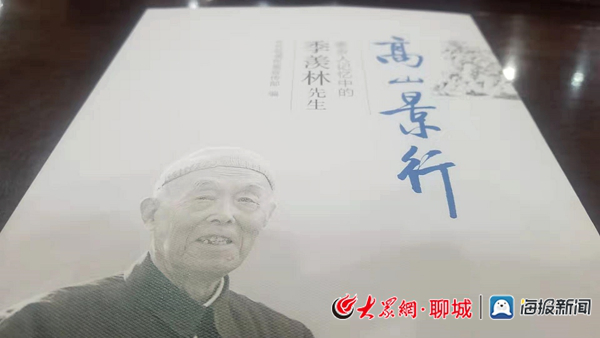 高山景行
人记忆中的
季羡林先生
编
大眾網·聊城
海报新闻